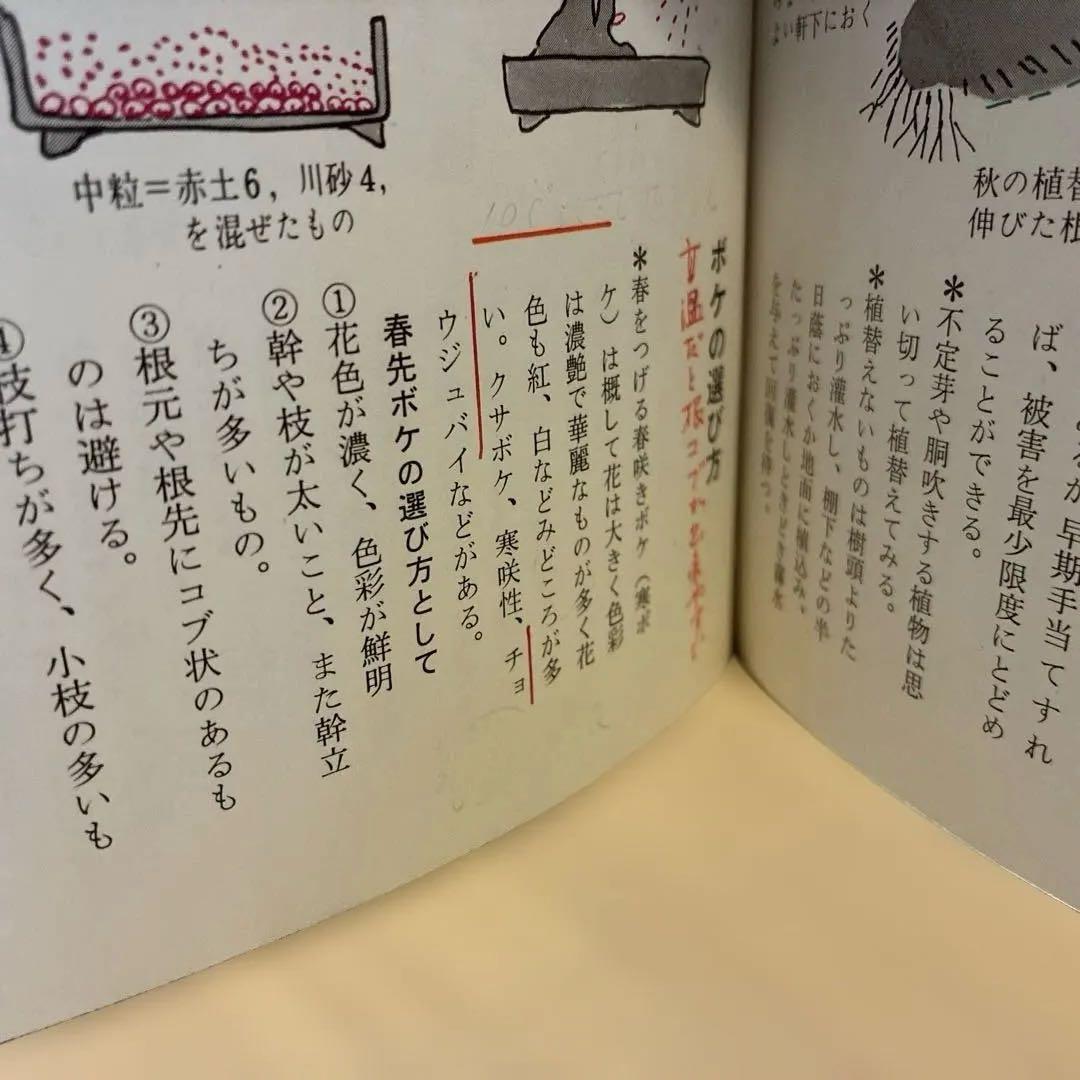 よい軒下におく
秋の植替
伸びた根
ば、被害を最少限度にとどめ
ることができる。
*不定芽や胴吹きする植物は思
い切って植替えてみる。
*植替えないものは樹頭よりた
っぷり灌水し、棚下などの半
日蔭におくか地面に植込み、
たっぷり灌水しときどき薬水
を与えて回復を待つ。
早期手当てすれ
中粒=赤土6,川砂4,
を混ぜたもの
ボケの選び方
高温だと根コブが出来やすい
*春をつげる春咲きボケ(寒ボ
ケ)は概して花は大きく色彩
は濃艶で華麗なものが多く花
色も紅、白などみどころが多
い。クサボケ、寒咲性、チョ
ウジュバイなどがある。
春先ボケの選び方として
①花色が濃く、色彩が鮮明
②幹や枝が太いこと、また幹立
ちが多いもの。
③根元や根先にコブ状のあるも
のは避ける。
④枝打ちが多く、小枝の多いも